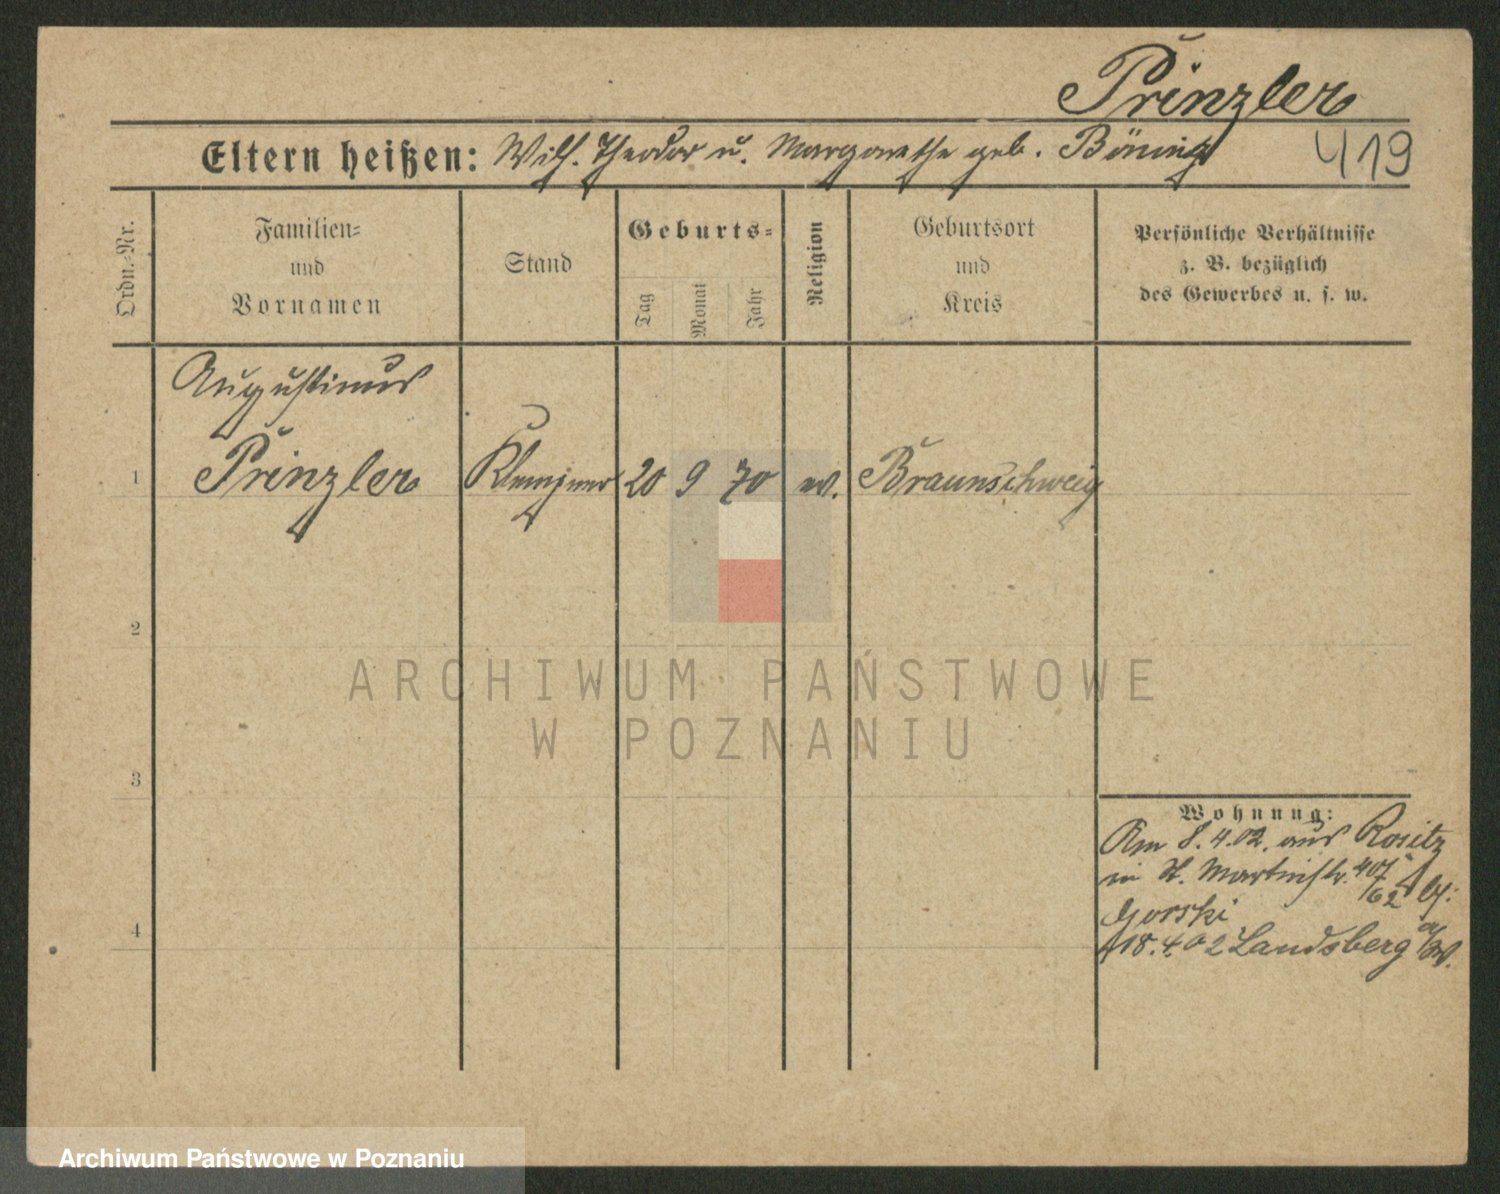 Prinzler
Eltern heißen: Wilh. Theodor u. Margarethe geb. Böning
419
Ordn.-Nr.
Familien-
und
Vornamen
Stand
Geburts-
Tag
Monat
Jahr
Religion
Geburtsort
und
Kreis
Persönliche Verhältnisse
z. B. bezüglich
des Gewerbes u. s. w.
Augustinus
1 Prinzler Klempner 20 9 70 ev. Braunschweig
2
ARCHIWUM PAŃSTWOWE
W POZNANIU
3
Wohnung:
8.4.02. aus Rositz
in St. Martinstr. 62 bei
Gorski
18.4.02 Landsberg a/W.
4
Archiwum Państwowe w Poznaniu